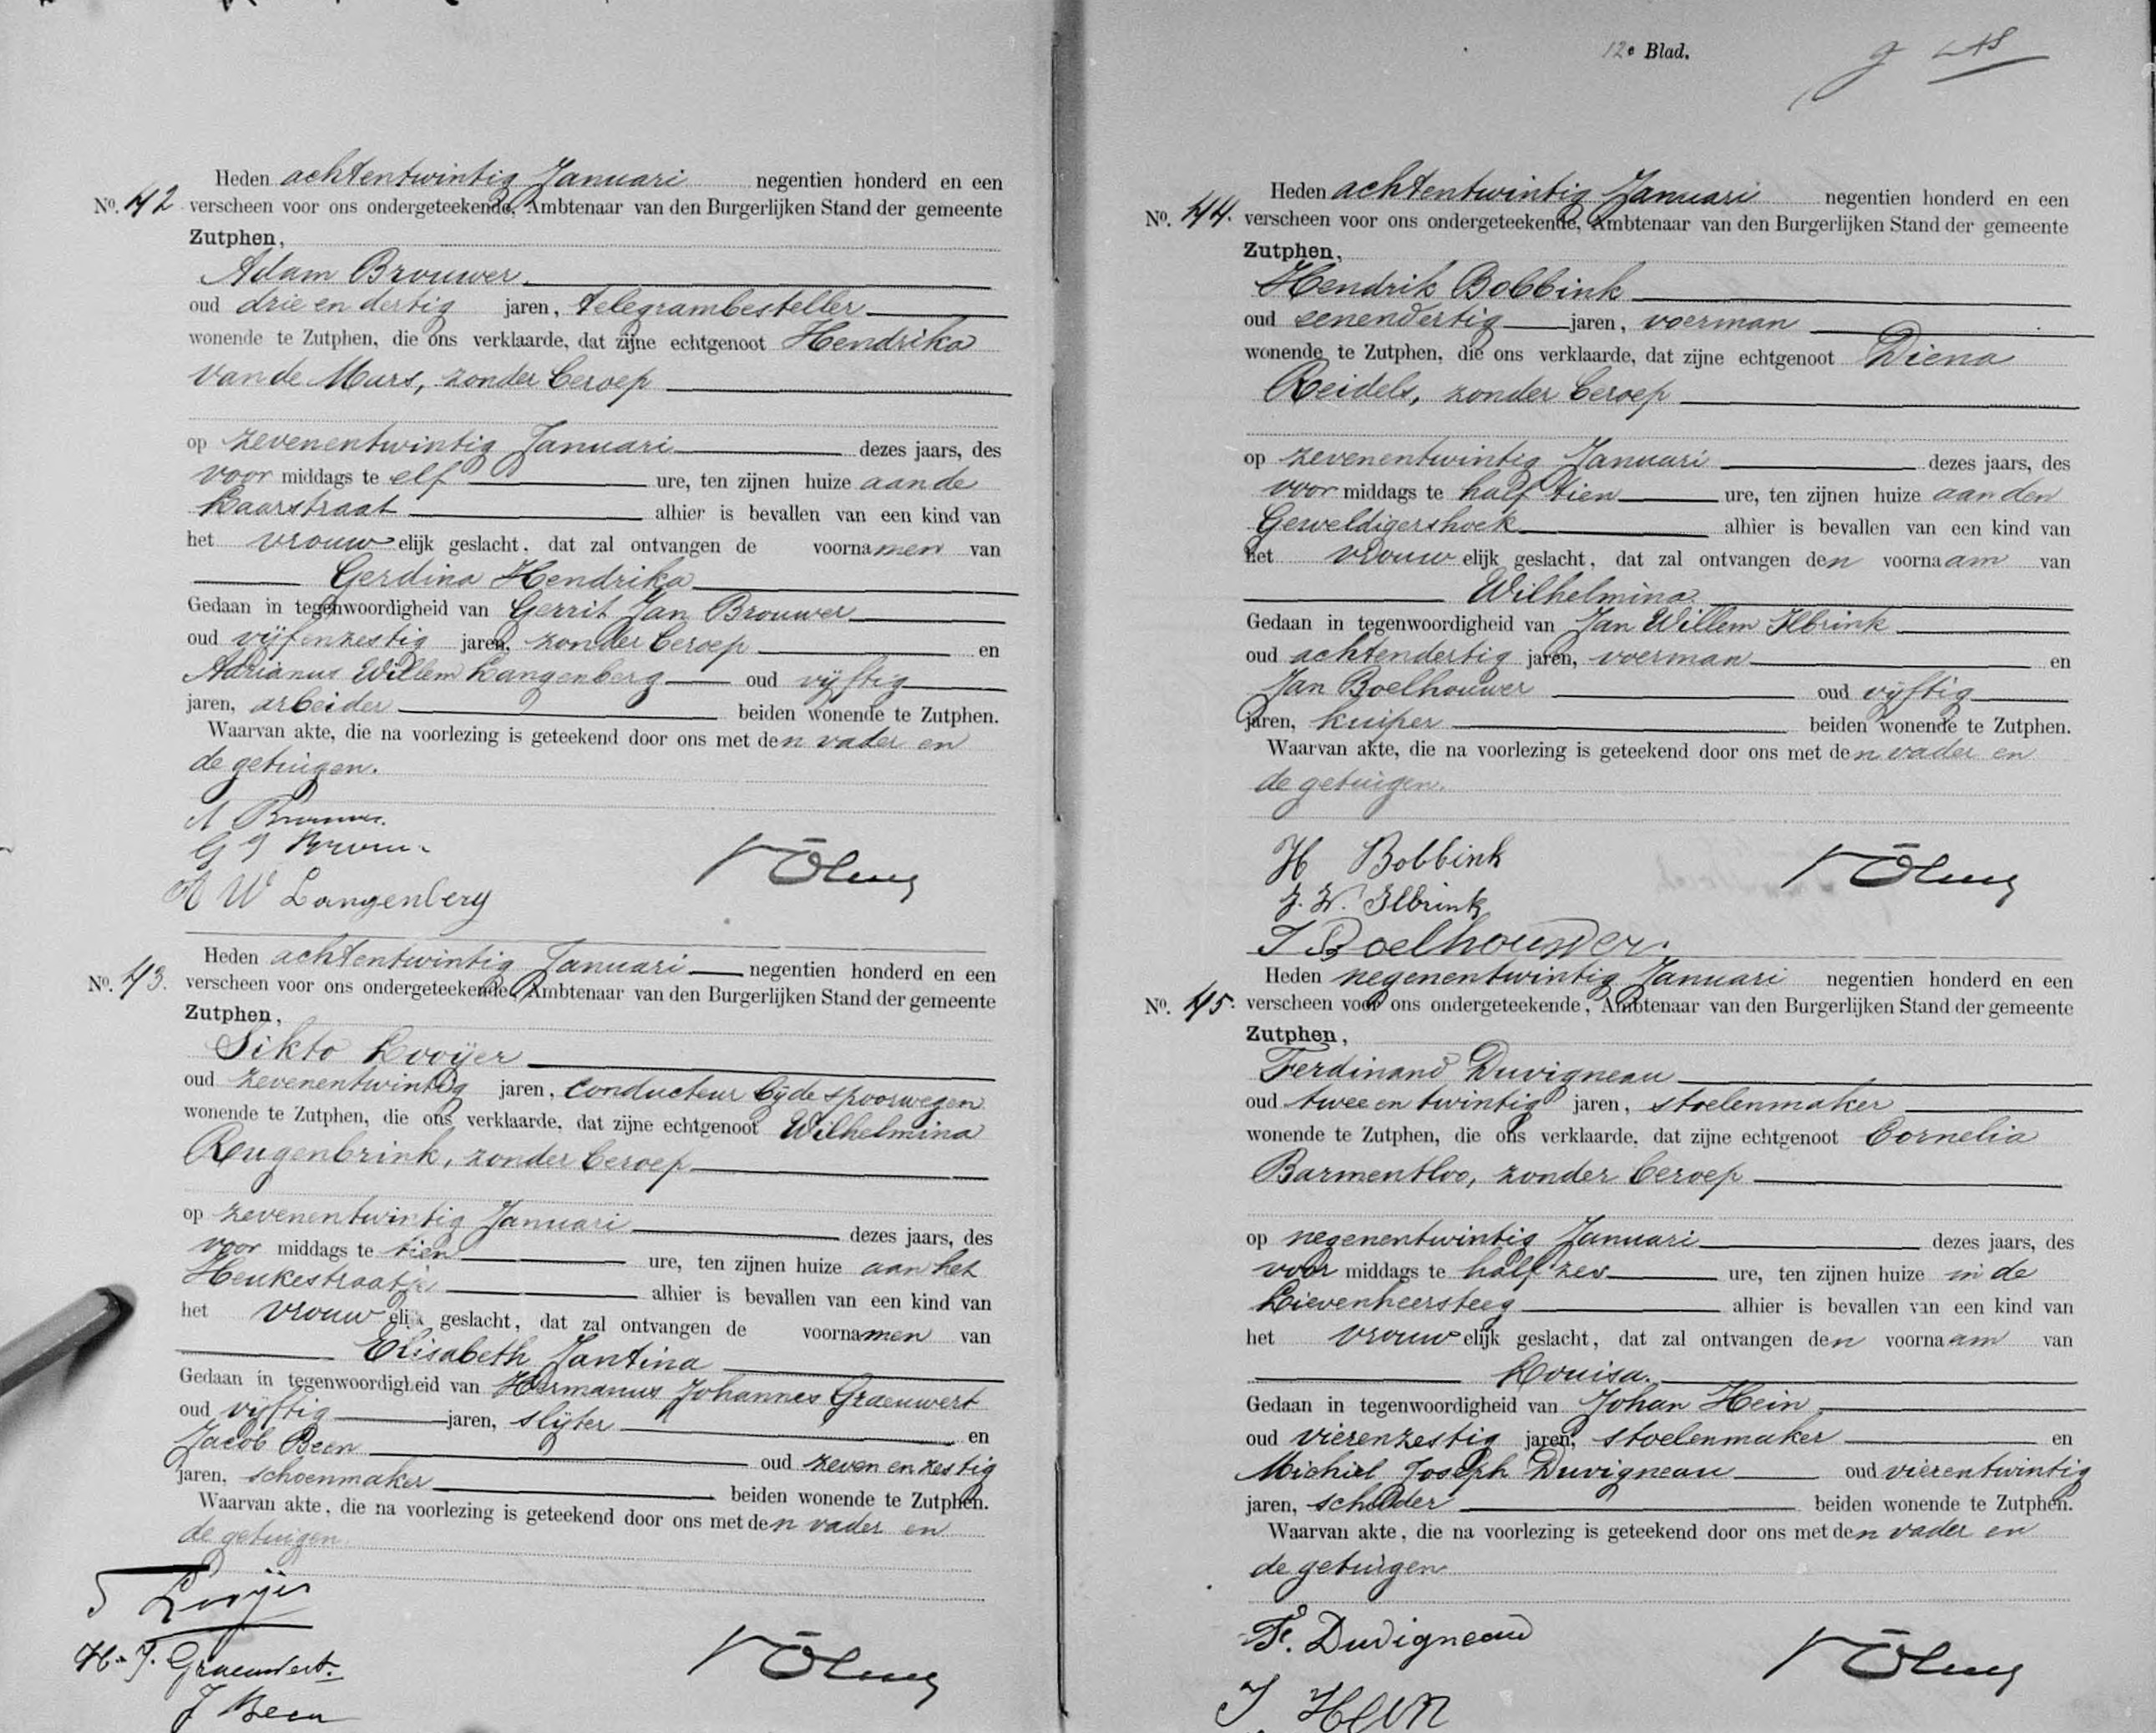 Heden achtentwintig Januari negentien honderd en een
No. 42 verscheen voor ons ondergeteekende, Ambtenaar van den Burgerlijken Stand der gemeente
Zutphen,
Adam Brouwer
oud drie en dertig jaren, telegrambesteller
wonende te Zutphen, die ons verklaarde, dat zijne echtgenoot Hendrika
van de Mars, zonder beroep
op zevenentwintig Januari dezes jaars, des
voor middags te elf ure, ten zijnen huize aan de
Laarstraat alhier is bevallen van een kind van
het vrouwelijk geslacht, dat zal ontvangen de voornamen van
Gerdina Hendrika
Gedaan in tegenwoordigheid van Gerrit Jan Brouwer
oud vijfenzestig jaren, zonder beroep en
Adrianus Willem Langenberg oud vijftig
jaren, arbeider beiden wonende te Zutphen.
Waarvan akte, die na voorlezing is geteekend door ons met den vader en
de getuigen.
A Brouwer.
G J Brouwer
A W Langenberg
Heden achtentwintig Januari negentien honderd en een
No. 43. verscheen voor ons ondergeteekende, Ambtenaar van den Burgerlijken Stand der gemeente
Zutphen,
Sikto Looijer
oud zevenentwintig jaren, conducteur bij de spoorwegen
wonende te Zutphen, die ons verklaarde, dat zijne echtgenoot Wilhelmina
Reugenbrink, zonder beroep
op zevenentwintig Januari dezes jaars, des
voor middags te tien ure, ten zijnen huize aan het
Heukestraatje alhier is bevallen van een kind van
het vrouwelijk geslacht, dat zal ontvangen de voornamen van
Elisabeth Jantina
Gedaan in tegenwoordigheid van Hermanus Johannes Graeuwert
oud vijftig jaren, slijter en
Jacob Been oud zeven en zestig
jaren, schoenmaker beiden wonende te Zutphen.
Waarvan akte, die na voorlezing is geteekend door ons met den vader en
de getuigen
S Looijer
H. J. Graeuwert.
J Been
12e Blad.
Heden achtentwintig Januari negentien honderd en een
No. 44. verscheen voor ons ondergeteekende, Ambtenaar van den Burgerlijken Stand der gemeente
Zutphen,
Hendrik Bobbink
oud eenendertig jaren, voerman
wonende te Zutphen, die ons verklaarde, dat zijne echtgenoot Diena
Reidels, zonder beroep
op zevenentwintig Januari dezes jaars, des
voor middags te half tien ure, ten zijnen huize aan den
Geweldigershoek alhier is bevallen van een kind van
het vrouwelijk geslacht, dat zal ontvangen den voornaam van
Wilhelmina
Gedaan in tegenwoordigheid van Jan Willem Ilbrink
oud achtendertig jaren, voerman en
Jan Boelhouwer oud vijftig
jaren, kuiper beiden wonende te Zutphen.
Waarvan akte, die na voorlezing is geteekend door ons met den vader en
de getuigen.
H Bobbink
J. W. Ilbrink
J Boelhouwer
Heden negenentwintig Januari negentien honderd en een
No. 45. verscheen voor ons ondergeteekende, Ambtenaar van den Burgerlijken Stand der gemeente
Zutphen,
Ferdinand Duvigneau
oud twee en twintig jaren, stoelenmaker
wonende te Zutphen, die ons verklaarde, dat zijne echtgenoot Cornelia
Barmentloo, zonder beroep
op negenentwintig Januari dezes jaars, des
voor middags te half zes ure, ten zijnen huize in de
Lievenheersteeg alhier is bevallen van een kind van
het vrouwelijk geslacht, dat zal ontvangen den voornaam van
Louisa.
Gedaan in tegenwoordigheid van Johan Hein
oud vierenzestig jaren, stoelenmaker en
Michiel Joseph Duvigneau oud vierentwintig
jaren, schilder beiden wonende te Zutphen.
Waarvan akte, die na voorlezing is geteekend door ons met den vader en
de getuigen
F. Duvigneau
J Hein